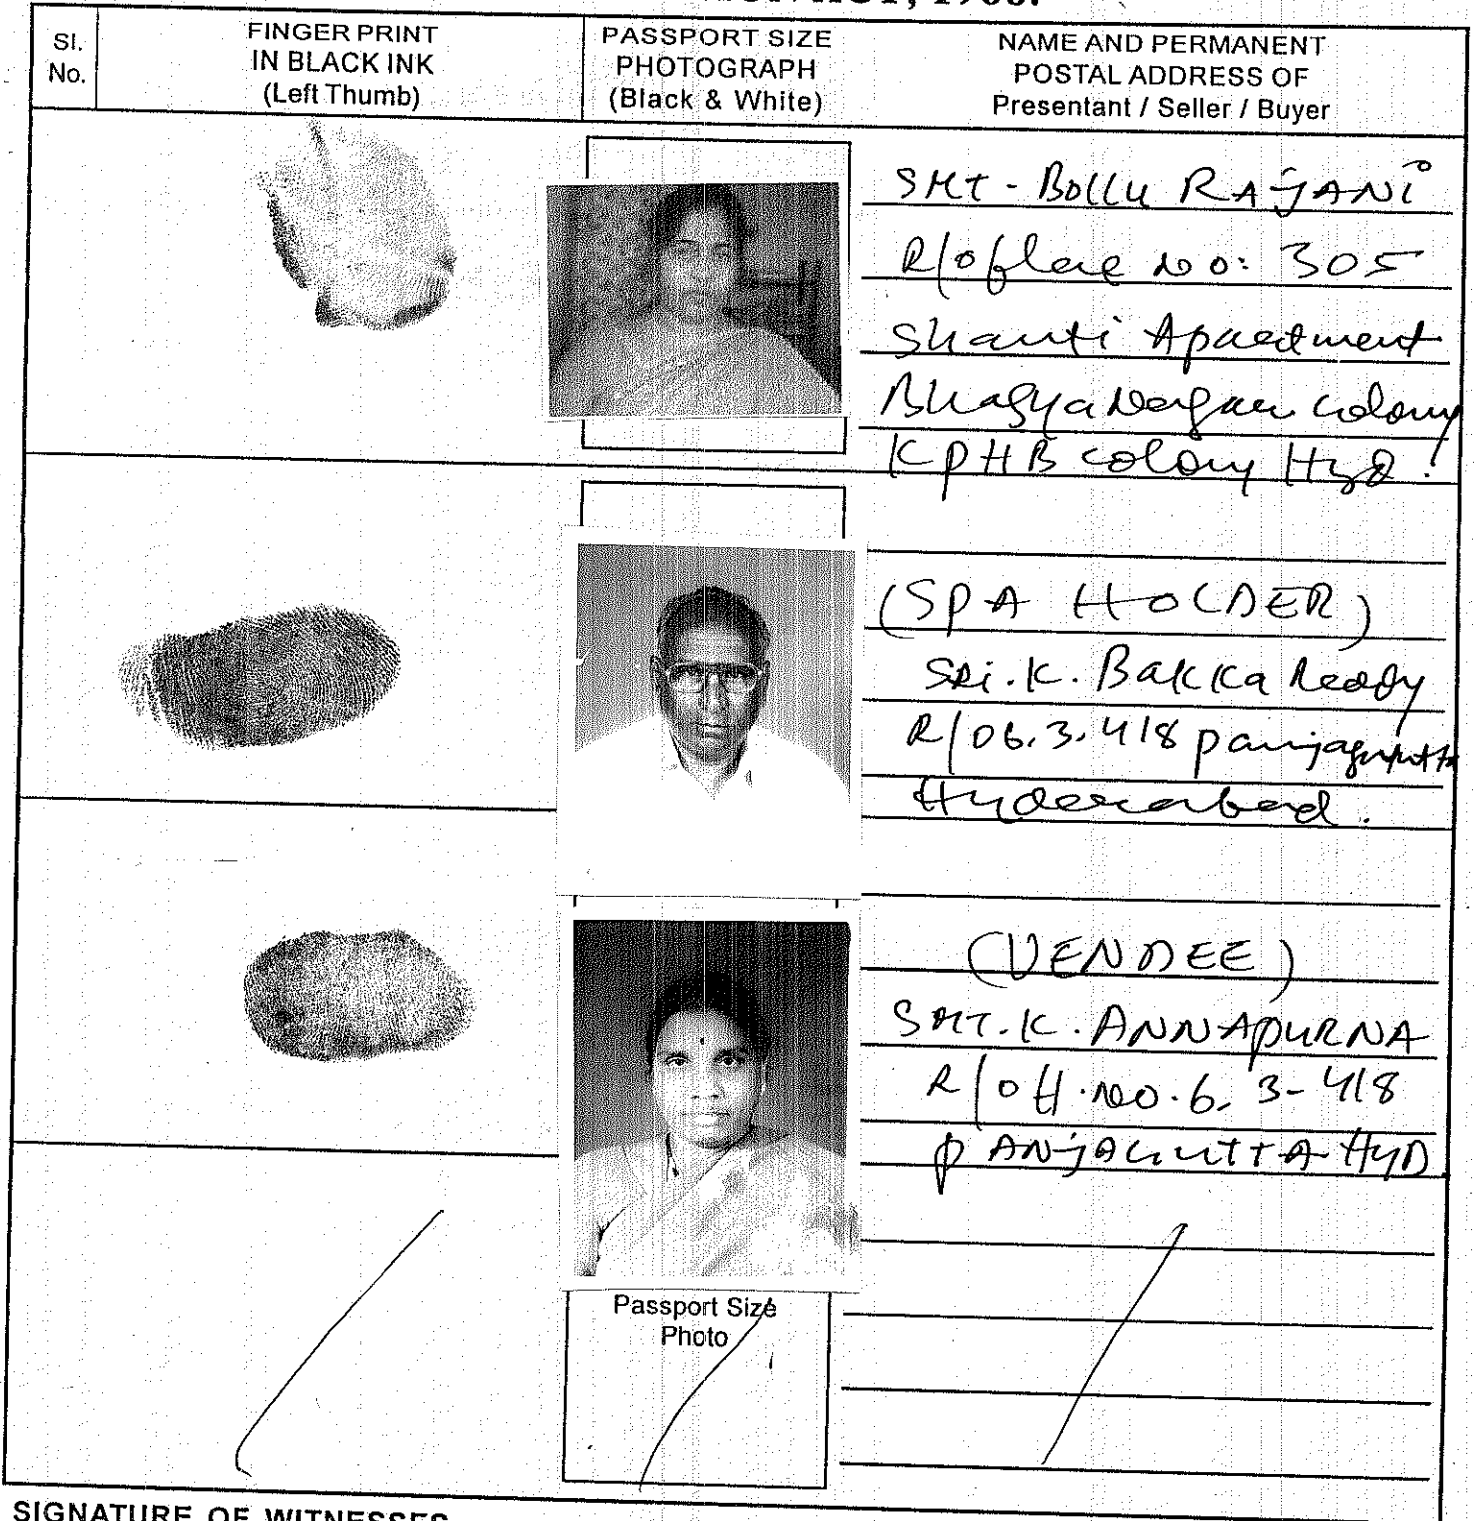 1908.
Sl.
No.
FINGER PRINT
IN BLACK INK
(Left Thumb)
PASSPORT SIZE
PHOTOGRAPH
(Black & White)
NAME AND PERMANENT
POSTAL ADDRESS OF
Presentant / Seller / Buyer
SMT - Bollu RAJANI
R/o flat no: 305
Shanti Apartment
Bhagya Nagar colony
KPHB colony Hyd.
(SPA HOLDER)
Sri. K. Bakka Reddy
R/o 6.3.418 panjagutta
Hyderabad.
(VENDEE)
SMT. K. ANNAPURNA
R/o H. No. 6. 3-418
PANJAGUTTA HYD
Passport Size
Photo
SIGNATURE OF WITNESSES